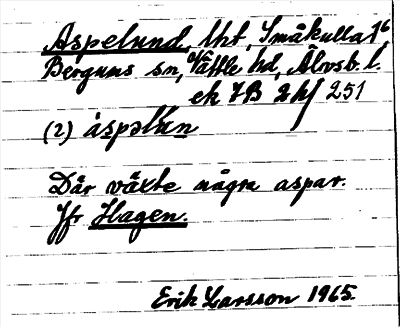 Aspelund, lht, Småkulla 1⁶
Bergums sn, Vättle hd, Älvsb. l.
ek 7B 2h/ 251
(2) àspəlún
Där växte några aspar.
Jfr Hagen.
Erik Larsson 1965.